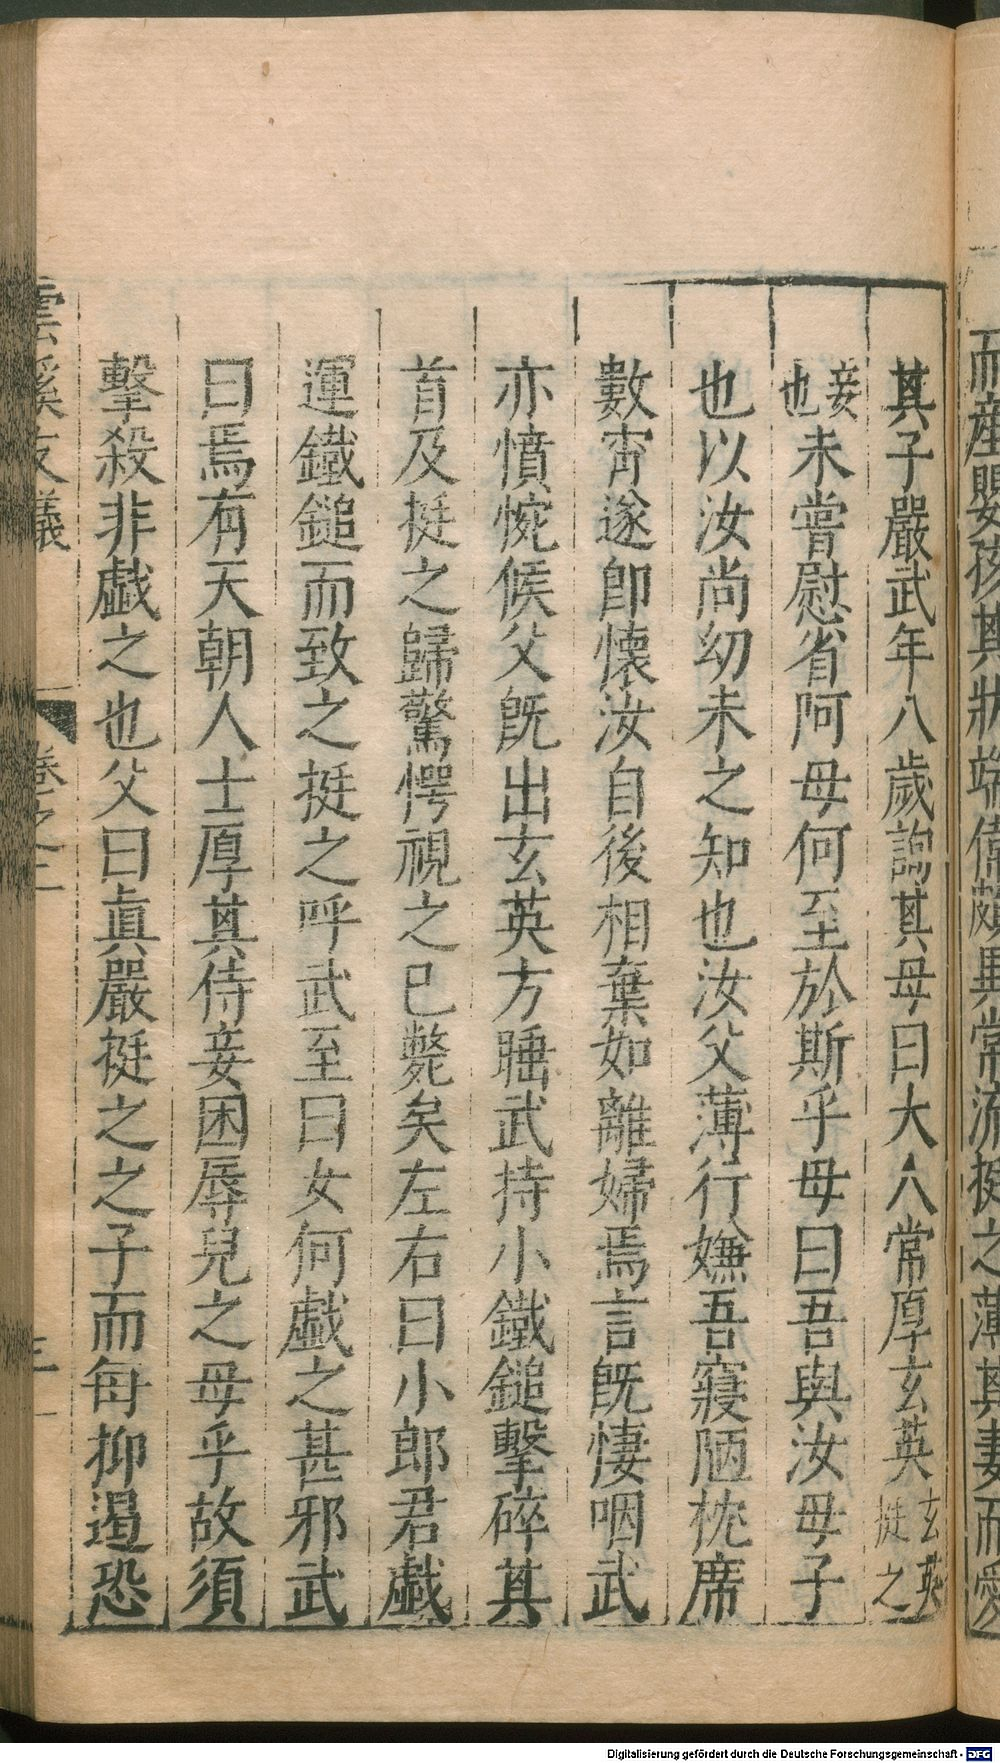 而産嬰孩其狀端偉頗異常流挺之薄其妻而愛
其子嚴武年八歲詢其母曰大人常厚玄英玄英挺之
妾也未嘗慰省阿母何至於斯乎母曰吾與汝母子
也以汝尚幼未之知也汝父薄行嫌吾寢陋枕席
數宵遂卽懷汝自後相棄如離婦焉言旣悽咽武
亦憤惋候父旣出玄英方睡武持小鐵鎚擊碎其
首及挺之歸驚愕視之已斃矣左右曰小郎君戲
運鐵鎚而致之挺之呼武至曰女何戲之甚邪武
曰焉有天朝人士厚其侍妾困辱兒之母乎故須
擊殺非戲之也父曰眞嚴挺之之子而每抑遏恐
雲溪友議 卷之上 三
Digitalisierung gefördert durch die Deutsche Forschungsgemeinschaft - DFG